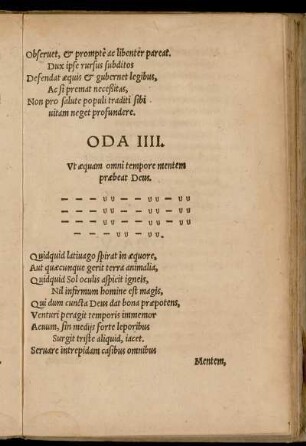 Obseruet, & promptè ac libenter pareat.
Dux ipse rursus subditos
Defendat æquis & gubernet legibus,
Ac si premat necessitas,
Non pro salute populi traditi sibi
uitam neget profundere.
ODA IIII.
Vt æquam omni tempore mentem
præbeat Deus.
Quidquid latiuago spirat in æquore,
Aut quæcunque gerit terra animalia,
Quidquid Sol oculis aspicit igneis,
Nil infirmum homine est magis,
Qui dum cuncta Deus dat bona præpotens,
Venturi peragit temporis immemor
Aeuum, sin medijs forte leporibus
Surgit triste aliquid, iacet.
Seruare intrepidam casibus omnibus
Mentem,